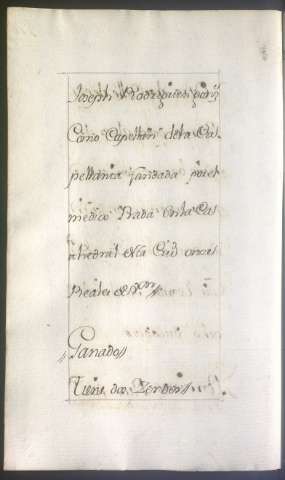 Joseph Rodriguez
Como Capellan dela Ca-
pellania fundada por el
medico Prada en la Ca-
thedral de la Ciud once
Reales de Von
Ganado
Tiene dos Zerdos